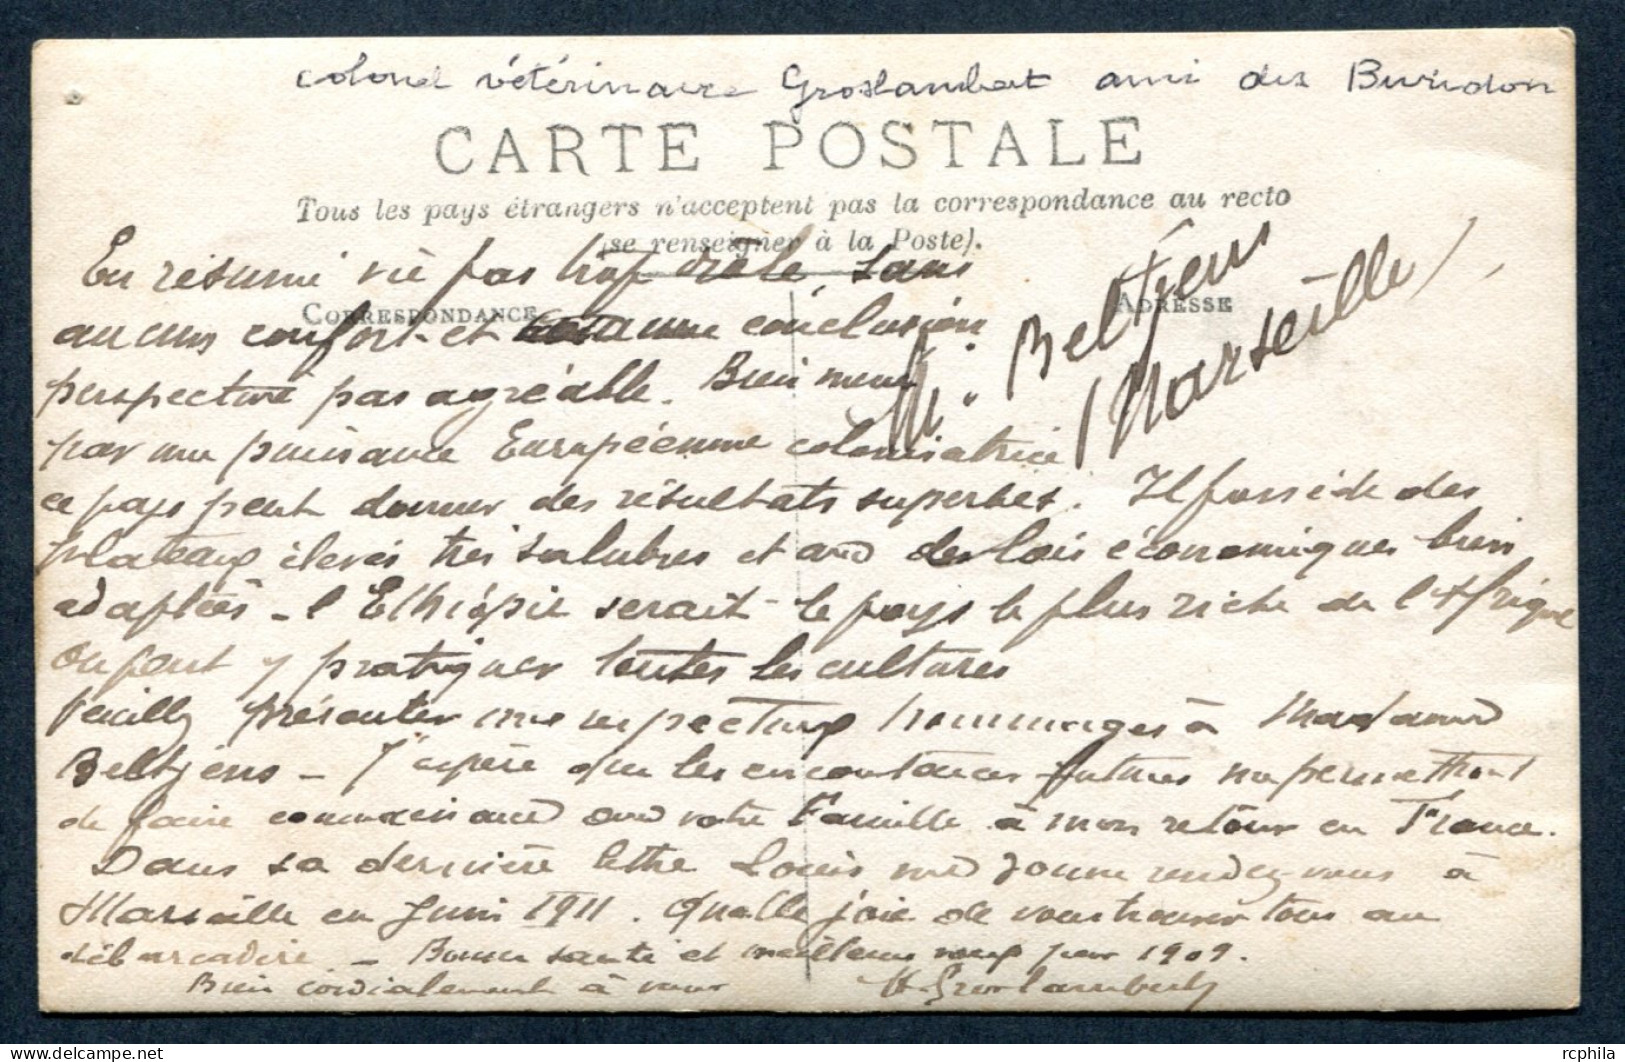 colonel vétérinaire Groslambert ami des Buridon
CARTE POSTALE
Tous les pays étrangers n'acceptent pas la correspondance au recto
(se renseigner à la Poste).
CORRESPONDANCE
ADRESSE
M. Beltjens
(Marseille)
En résumé vie pas trop drôle, sans
aucuns confort et comme conclusion
perspective pas agréable. Bien menée
par une puissance Européenne colonisatrice
ce pays peut donner des résultats superbes. Il possède des
plateaux élevés très salubres et avec des lois économiques bien
adaptées - l'Ethiopie serait le pays le plus riche de l'Afrique
On peut y pratiquer toutes les cultures
Veuillez présenter mes respectueux hommages à Madame
Beltjens - J'espère que les circonstances futures me permettront
de faire connaissance avec votre famille à mon retour en France.
Dans sa dernière lettre Louis me donne rendez-vous à
Marseille en Juin 1911. Quelle joie de vous trouver tous au
débarcadère - Bonne santé et meilleurs voeux pour 1909.
Bien cordialement à vous
H Groslambert
rcphila